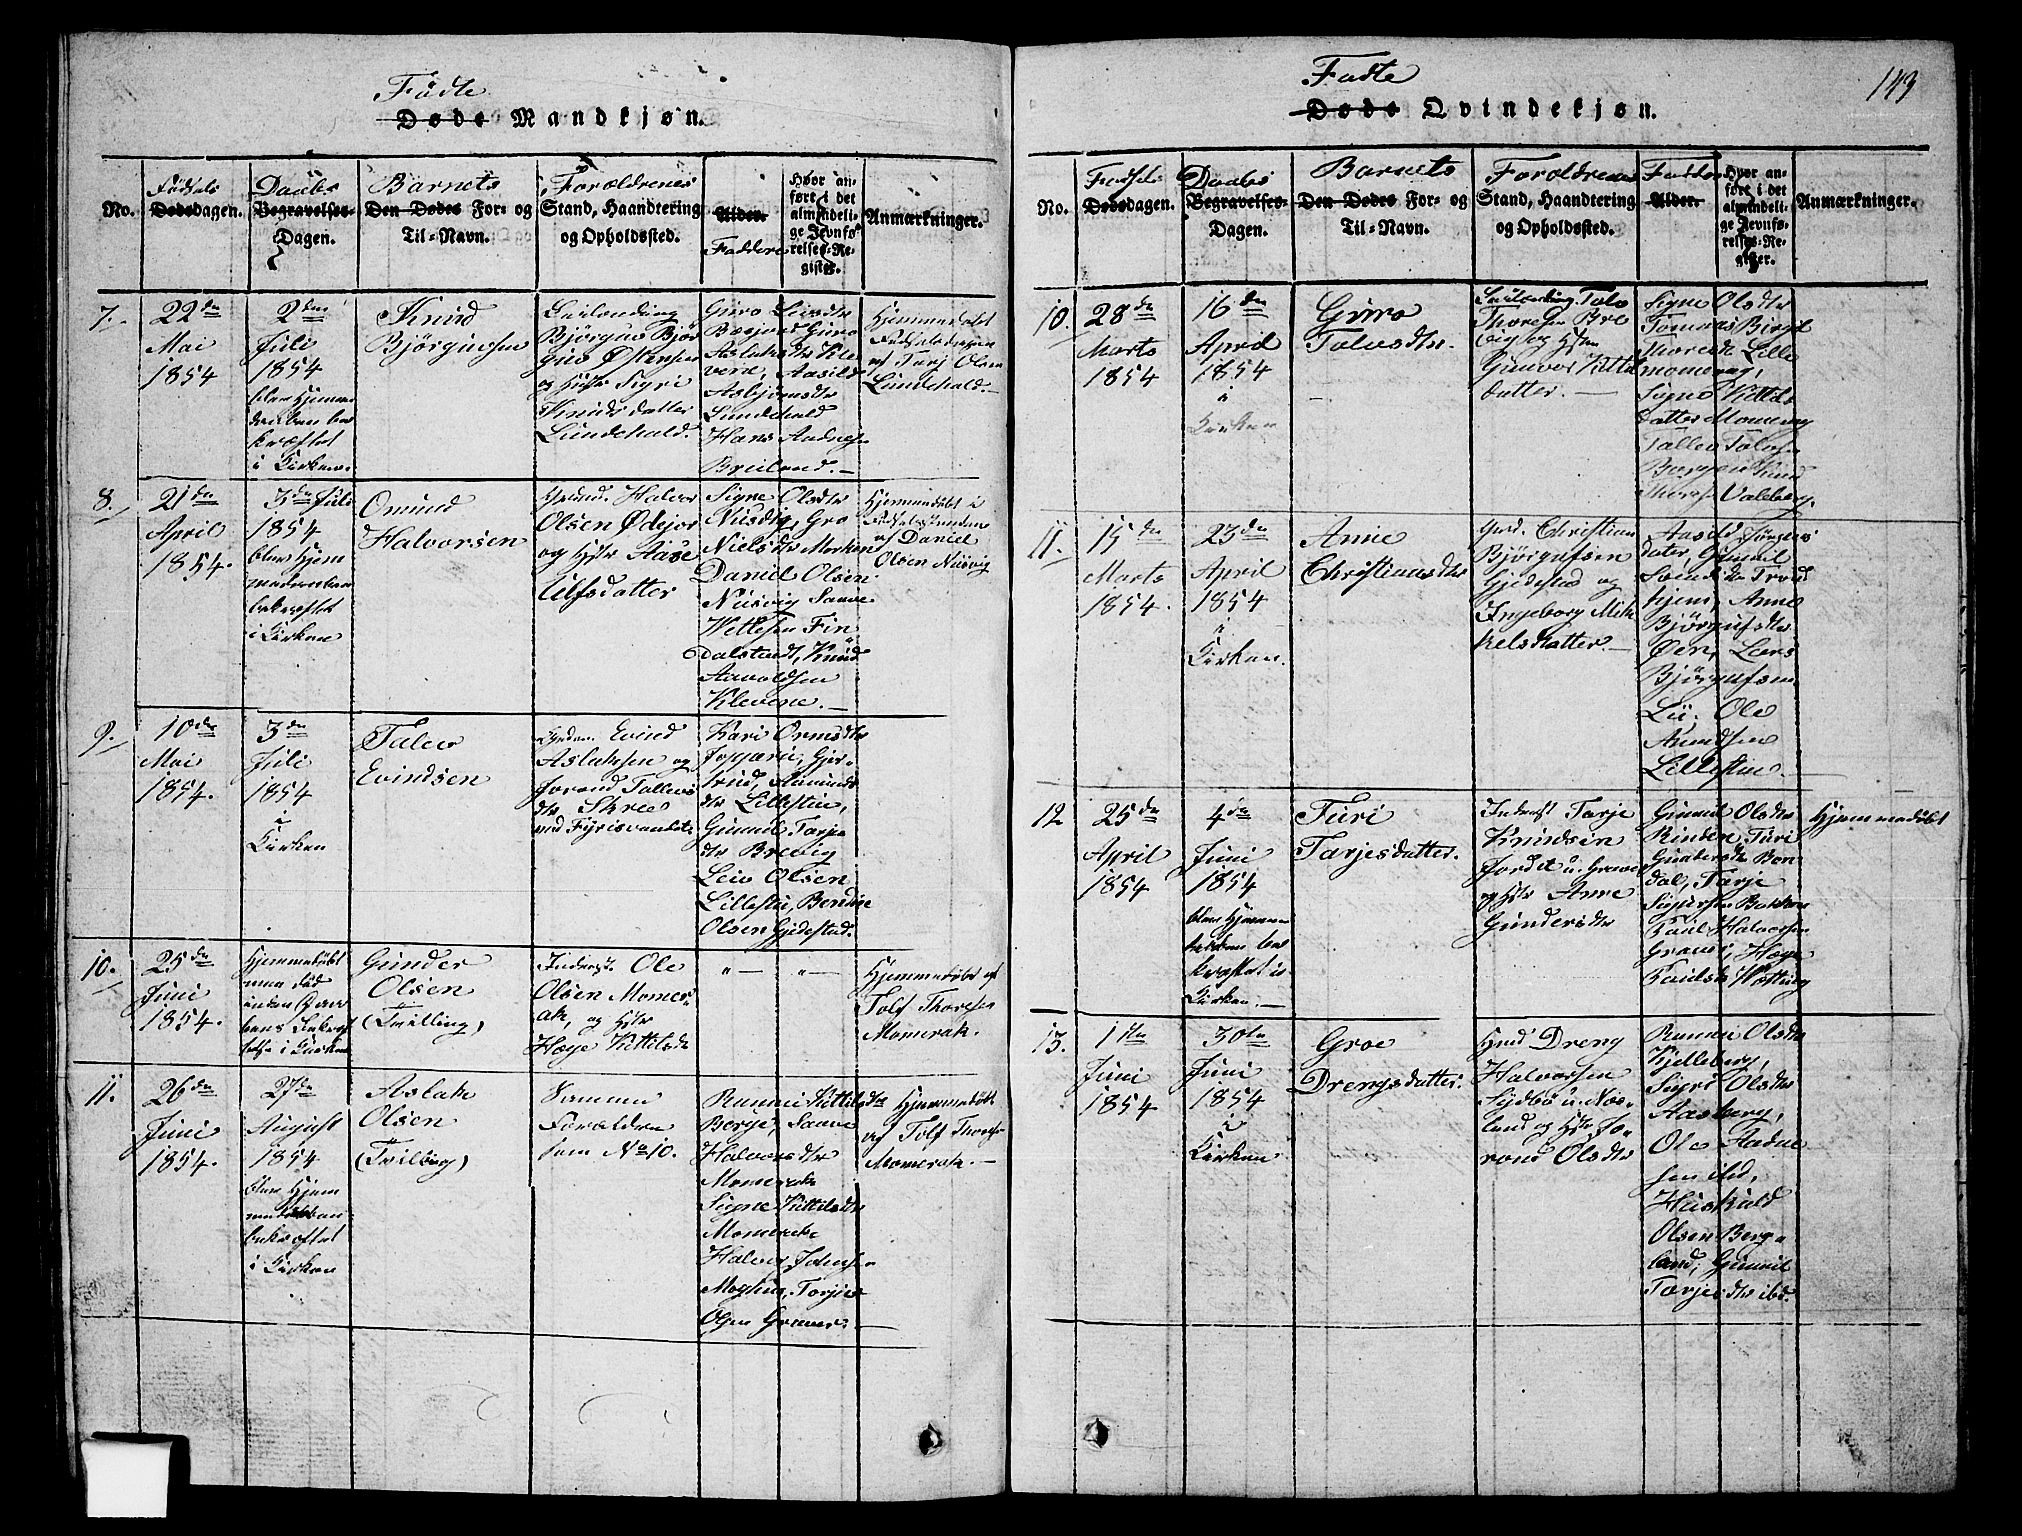 Fødte
Døde Mandkjøn.
No.
Fødsels
Dødsdagen.
Daabs
Begravelses-
Dagen.
Barnets
Den Dødes For- og
Til-Navn.
Forældrenes
Stand, Haandtering
og Opholdssted.
Alder.
Faddere
Hvor an-
ført i det
almindeli-
ge Jevnfø-
relses-Re-
gister.
Anmærkninger.
7.
22de
Mai
1854
2den
Juli
1854
blev Hjemme
daaben be
kræftet
i Kirken.
Knud
Bjørgufsen
Leilending
Bjørguf Bjør
gufs Østensen
og Hstr Sigri
Knudsdatter
Lundekald.
Guro Leisdtr
Guro
Aslaksdtr Kle
vene, Aasild
Asbjørnsdtr
Lundekald
Hans Aadnesen
Breiland.
Hjemmedøbt
Fødselsdagen
af Tarj Olsen
Lundekald.
8.
21de
April
1854.
3die Juli
1854
blev Hjem
medaaben
bekræftet
i Kirken
Omund
Halvorsen
Halvor
Olsen Ødejor
og Hstr Aase
Ulfsdatter
Signe Olsdtr
Nusvig, Gro
Nielsdtr Morken
Daniel Olsen
Nusvig Saave
Vetlesen Fin
dalstædt, Knud
Aavoldsen
Klevene.
Hjemmedøbt i
af Daniel
Olsen Nusvig
9.
10de
Mai
1854.
3de
Juli
1854
i
Kirken
Talev
Evindsen
Evind
Aslaksen og
Jorand Tallevs
dtr Skree
ved Fyrisvandet
Kari Ormsdtr
Gjer-
trud Aamunds
dtr Lillestin,
Gunnil Tarje
dtr Brevig
Leiv Olsen
Lillestin, Bendix
Olsen Gjedestad.
10.
25de
Juni
1854.
Hjemmedøbt
men død
inden Daa-
bens Bekræf
telse i Kirken
Gunder
Olsen
(Tvilling)
Inderst Ole
Olsen Momer-
ak, og Hstr
Hæge Kittilsdtr
" — " —
Hjemmedøbt af
Tolf Thorsen
Momerak.
11.
26de
Juni
1854.
27de
August
1854
blev Hjem
medaaben
bekræftet
i Kirken
Aslak
Olsen
(Tvilling)
Samme
Forældre
som No 10.
Rannei Kittilsdtr
Berge, Saave
Halvorsdtr
Momerak
Signe Kittilsdtr
Momerak
Halvor Johnsen
Moghus, Torjus
Olsen Graver.
Hjemmedøbt
af Tolf Thorsen
Momerak.
143
Fødte
Døde Qvindekjøn.
No.
Fødsels
Dødsdagen.
Daabs
Begravelses-
Dagen.
Barnets
Den Dødes For- og
Til-Navn.
Forældrenes
Stand, Haandtering
og Opholdssted.
Faddere
Alder.
Hvor an-
ført i det
almindeli-
ge Jevnfø-
relses-Re-
gister.
Anmærkninger.
10.
28de
Marts
1854
16de
April
1854
i
Kirken
Guro
Talvsdtr.
Leilending Talv
Thoresen Bre
vig og Hstr
Gunvor Kittils
datter.
Signe Olsdtr
Tomaas Birgit
Thoresdtr Lille
momerag,
Signe Kittils
datter Momerag
Tallev Talvsen
Bergen Knud
Thoresen Valeberg
11.
15de
Marts
1854.
23de
April
1854
i
Kirken.
Anne
Christiansdtr
Grd. Christian
Bjørgufsen
Gjedestad og
Ingeborg Mik
kelsdatter.
Aasild Jørgens
dater, Gunnil
Svendsdtr Trond
hjem, Anne
Bjørgufsdtr
Øen, Lars
Bjørgufsen
Lii, Ole
Amundsen
Lillestin.
12
25de
April
1854
4de
Juni
1854
blev Hjemme
daaben be
kræftet i
Kirken.
Turi
Tarjesdatter.
Inderst Tarje
Knudsen
Jordet u. Grave
og Hstr Anne
Gundersdtr
Gunnil Olsdtr
Rinden, Turi
Gundersdtr Bon-
dal, Tarje
Sigursen Bakken
Paul Halvorsen
Graver, Hæge
Paulsdtr Høsting
Hjemmedøbt
13.
11te
Juni
1854
30te
Juni
1854
i
Kirken
Groe
Drengsdatter.
Dreng
Halvorsen
Sydbø u. Nos-
land og Hstr Jo-
rond Olsdtr
Rannei Olsdtr
Kjelleberg,
Sigri Olsdtr
Aasberg,
Ole Aadne
sen ibd,
Huskuld
Olsen Berge-
land, Gunnil
Tarjesdtr ibd.